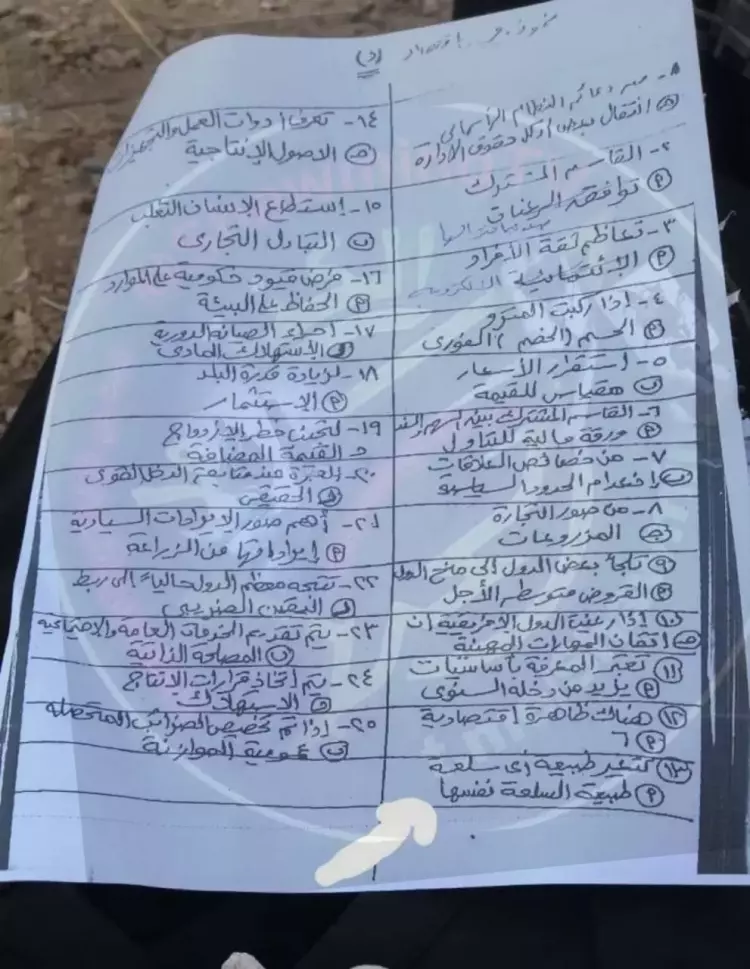 نموذج اقتصاد (د)
١- من دعائم النظام الرأسمالي
انتقال بعض أو كل حقوق الإدارة
٢- القاسم المشترك
م توافقه الرغبات
٣- تعاظم ثقة الأفراد
م الإئتمانية الالكترونية
٤- إذا ركبت المترو
م الحسم (الخصم) الفورى
٥- استقرار الأسعار
مقياس للقيمة
٦- القاسم المشترك بين السهم والسند
م ورقة مالية للتداول
٧- من خصائص العلاقات
انعدام الحدود السياسية
٨- من صور التجارة
المزروعات
٩ تلجأ بعض الدول إلى مانح الدول
م القروض متوسطه الأجل
١٠ إذا رغبة الدول الافريقية ان
اتقان المهارات المهنية
١١ تعتبر المعرفة بأساسيات
م يزيد من دخله السنوى
١٢ هناك ظاهرة اقتصادية
م ٦
١٣ تتغير طبيعة أى سلعة
م طبيعة السلعة نفسها
١٤- تعرف أدوات العمل والتجهيزات
الاصول الإنتاجية
١٥- إستطاع الإنسان التغلب
التبادل التجارى
١٦- فرض قيود حكومية على الموارد
م الحفاظ على البيئة
١٧- اجراء الصيانة الدورية
الاستهلاك المادى
١٨- لزيادة قدرة البلد
م الاستثمار
١٩- لتجنب خطر الإزدواج
د القيمة المضافة
٢٠- العبرة عند متابعة الدخل القومى
الحقيقى
٢١- أهم صور الايرادات السيادية
م إيراداتها من الزراعة
٢٢- تتجه معظم الدول حالياً إلى ربط
التيقن الضريبى
٢٣- يتم تقديم الخدمات العامة والاجتماعيه
المصلحة الذاتية
٢٤- يتم اتخاذ قرارات الإنتاج
الاستهلاك
٢٥- إذا تم تخصيص الضرائب المتحصله
عمومية الموازنة